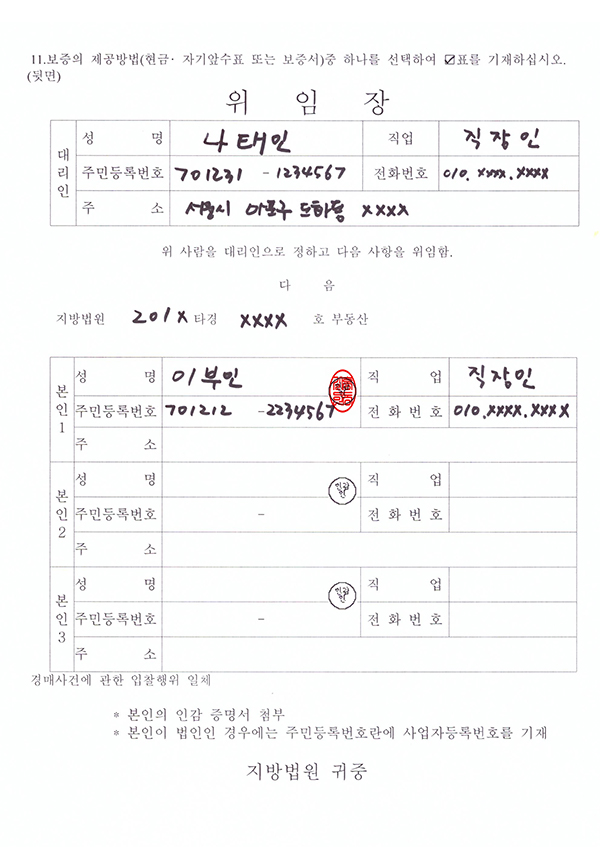 11.보증의 제공방법(현금· 자기앞수표 또는 보증서)중 하나를 선택하여 ☑표를 기재하십시오.
(뒷면)
위 임 장
대리인
성 명 나태인 직업 직장인
주민등록번호 701231 - 1234567 전화번호 010.xxxx.xxxx
주 소 서울시 마포구 도화동 xxxx
위 사람을 대리인으로 정하고 다음 사항을 위임함.
다 음
지방법원 201x 타경 xxxx 호 부동산
본인1
성 명 이부인 직 업 직장인
주민등록번호 701212 - 2234567 전 화 번 호 010.xxxx.xxxx
주 소
본인2
성 명 인감인 직 업
주민등록번호 - 전 화 번 호
주 소
본인3
성 명 인감인 직 업
주민등록번호 - 전 화 번 호
주 소
경매사건에 관한 입찰행위 일체
* 본인의 인감 증명서 첨부
* 본인이 법인인 경우에는 주민등록번호란에 사업자등록번호를 기재
지방법원 귀중